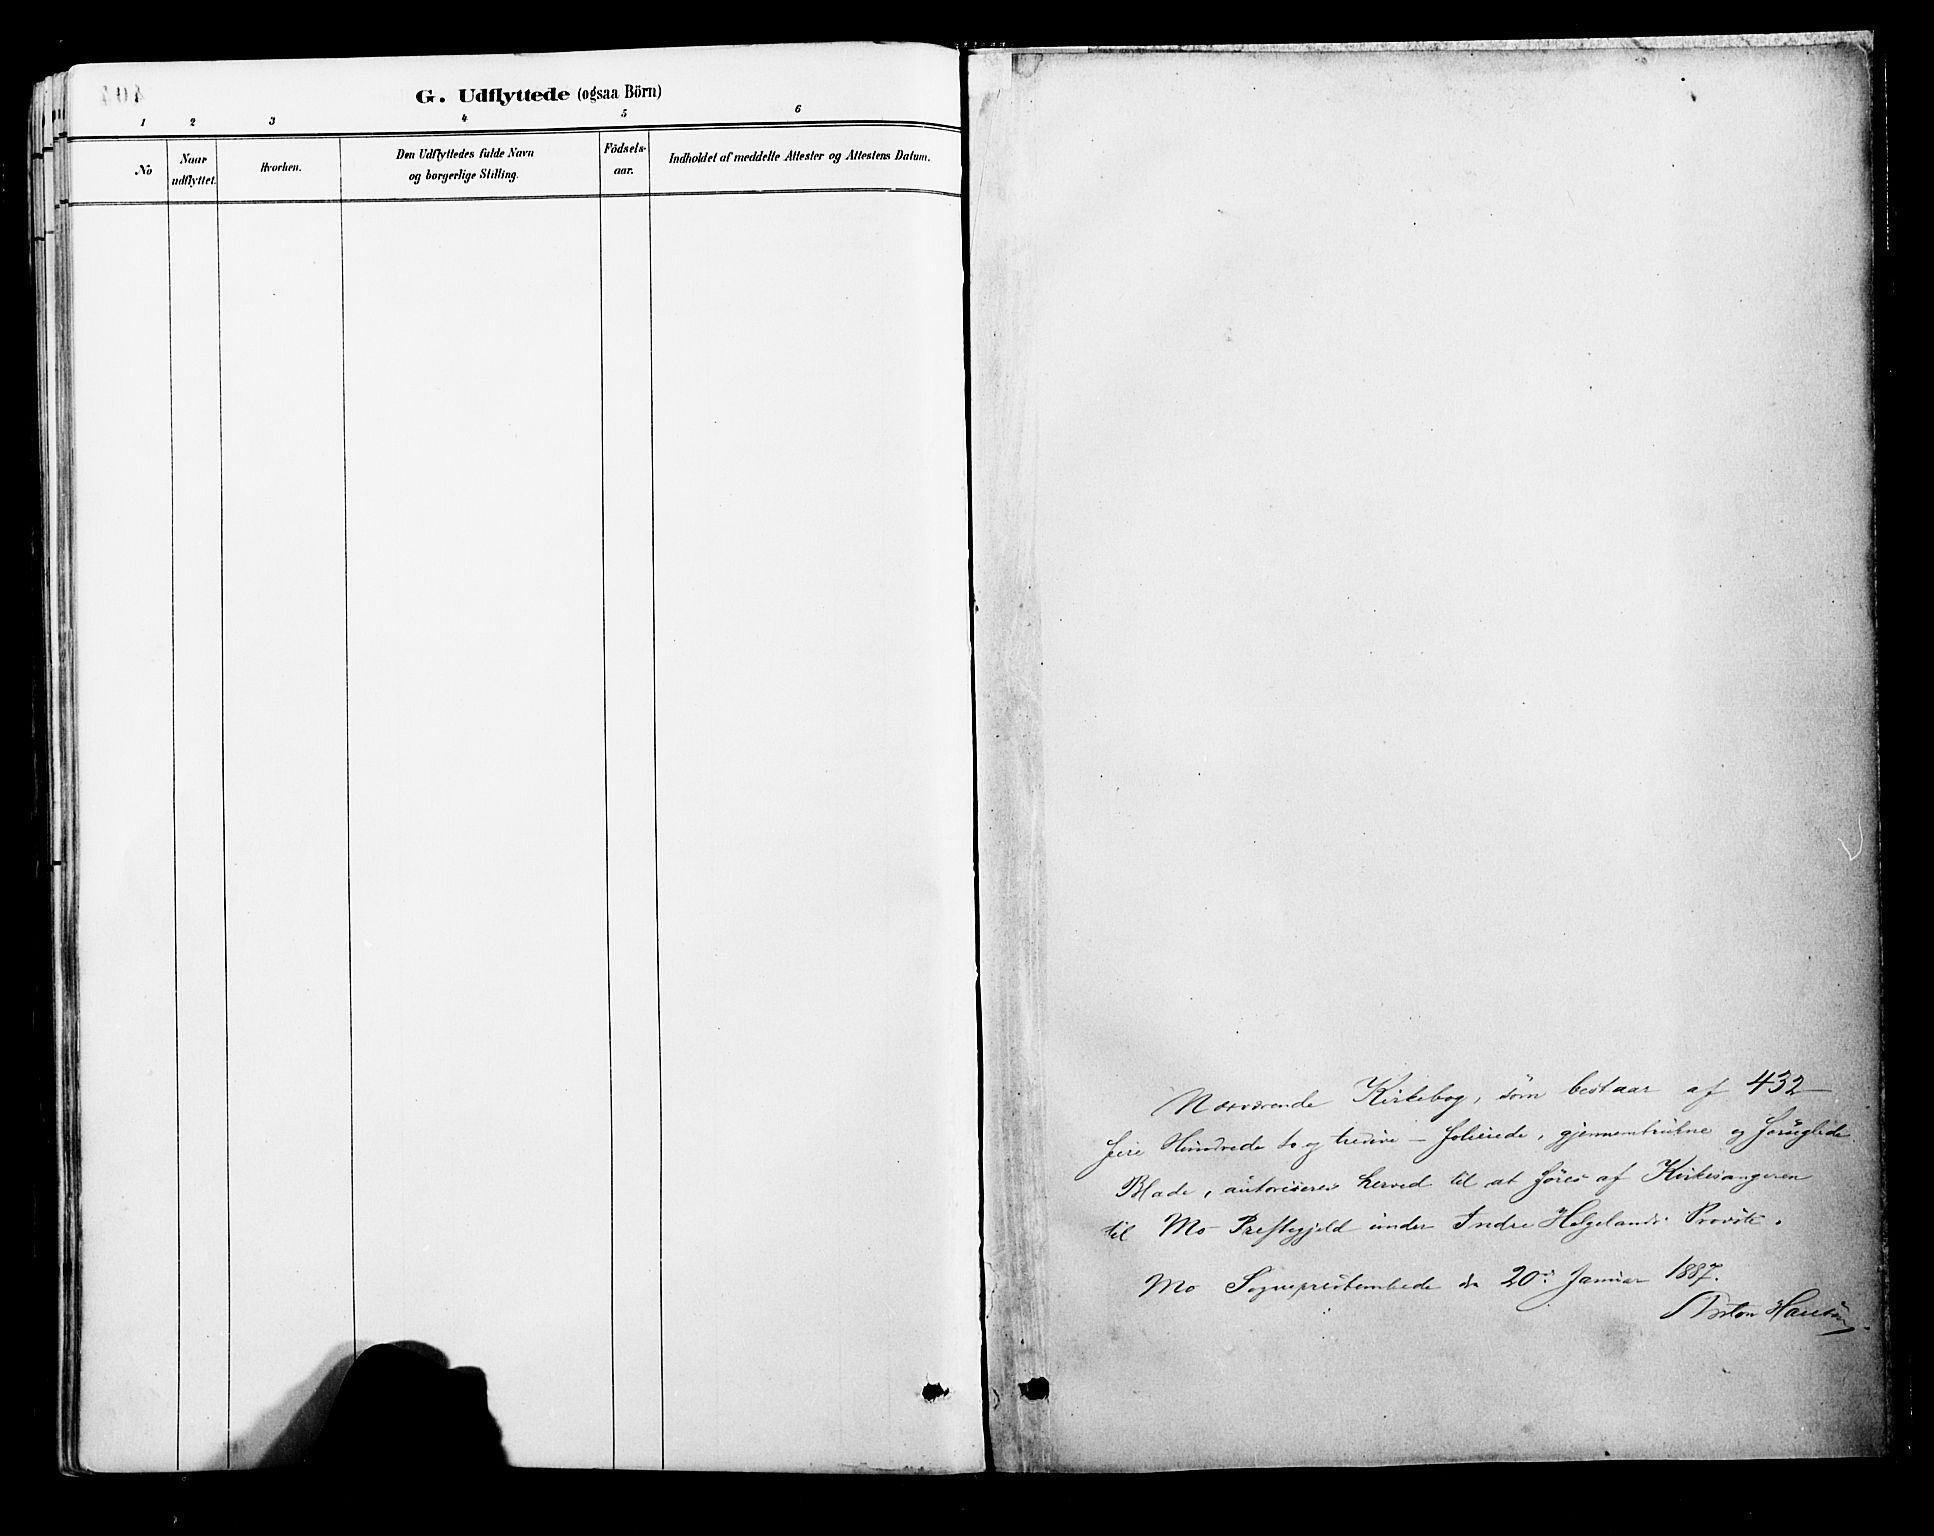 G. Udflyttede (ogsaa Börn)
1 2 3 4 5 6
No
Naar udflyttet.
Hvorhen.
Den Udflyttedes fulde Navn
og borgerlige Stilling.
Födsels-
aar.
Indholdet af meddelte Attester og Attestens Datum.
Nærværende Kirkebog, som bestaar af 432 –
fire Hundrede to og tredive – folierede, gjennemtrukne og forseglede
Blade, autoriseres herved til at føres af Kirkesangeren
til Mo Præstegjeld under Indre Helgelands Provsti.
Mo Sognepræstembede den 20de Januar 1887.
Anton Hansen